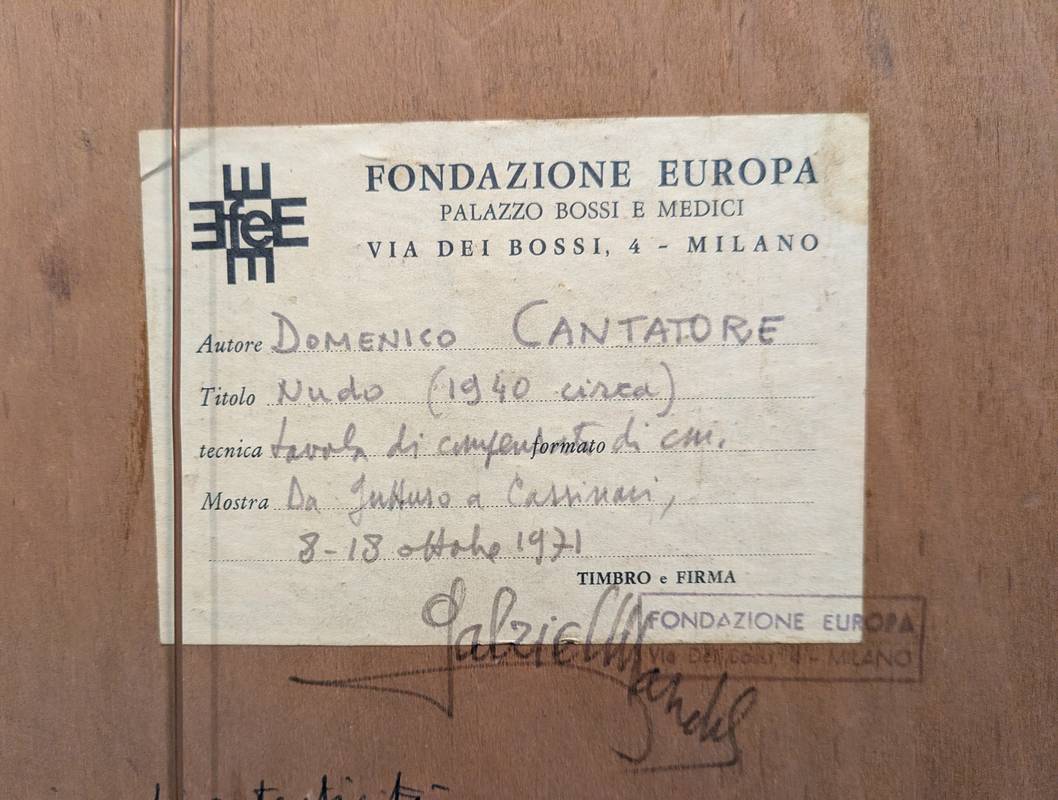 E
EfeE
E
FONDAZIONE EUROPA
PALAZZO BOSSI E MEDICI
VIA DEI BOSSI, 4 - MILANO
Autore DOMENICO CANTATORE
Titolo Nudo (1940 circa)
tecnica tavola di compensato formato di cm.
Mostra Da Guttuso a Cassinari,
8-18 ottobre 1971
TIMBRO e FIRMA
Gabriele Mandel
FONDAZIONE EUROPA
Via Dei Bossi 4 - MILANO